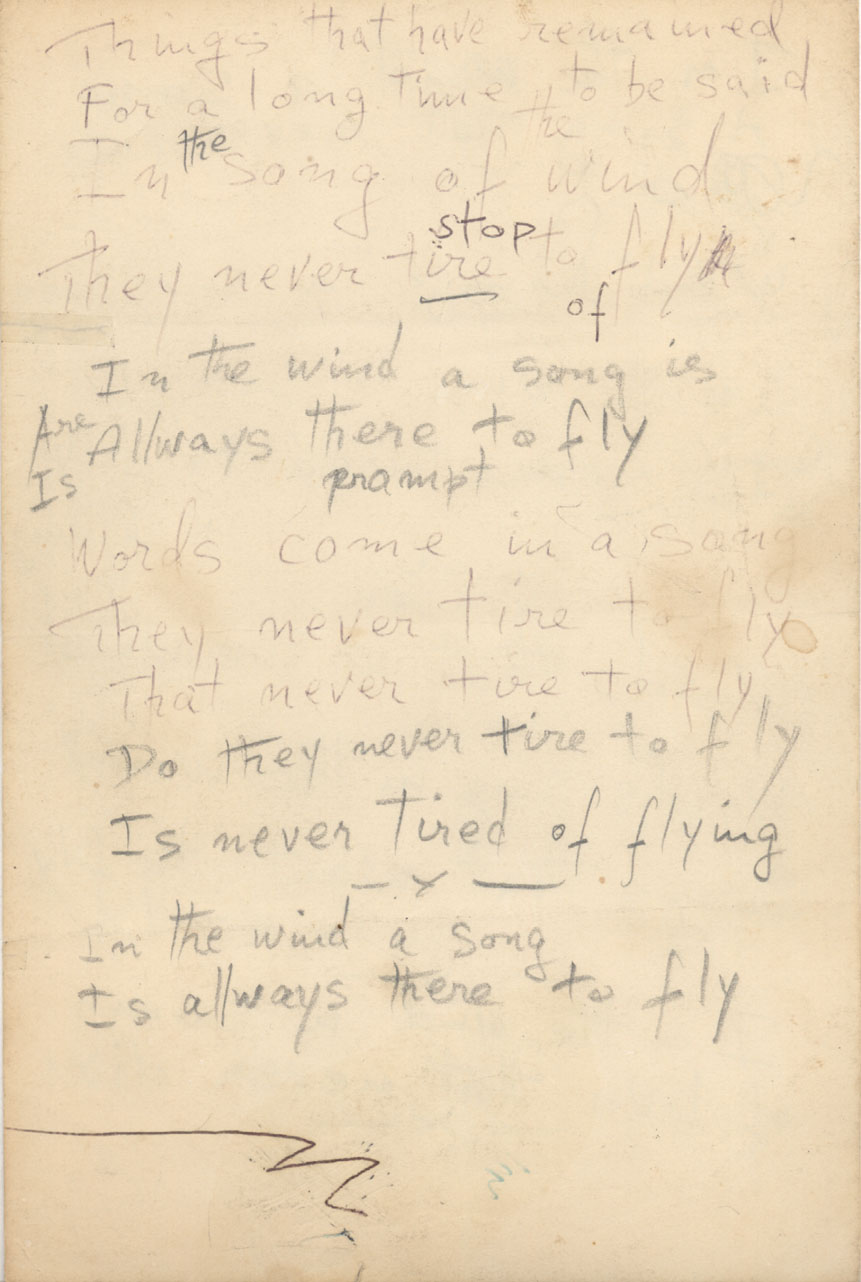 Things that have remained
For a long time to be said
the
In the song of wind
stop
They never tire to fly
of
In the wind a song is
Are Allways there to fly
Is prampt
Words come in a song
They never tire to fly
That never tire to fly
Do they never tire to fly
Is never tired of flying
— x —
In the wind a song
Is allways there to fly